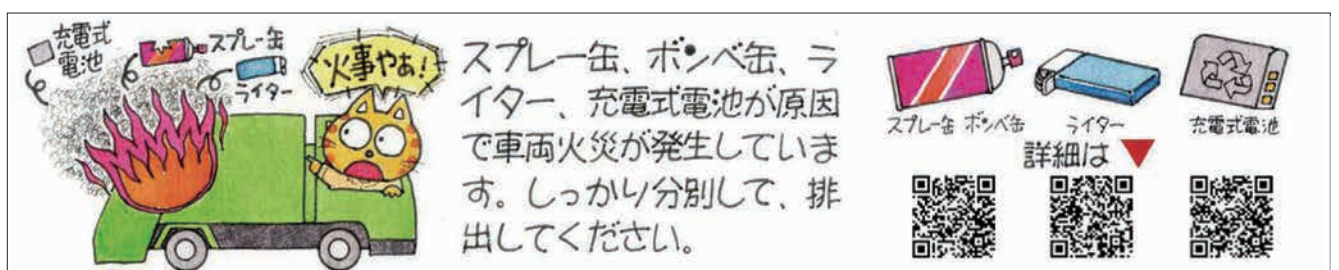 充電式
電池
スプレー缶
ライター
火事やぁ!
スプレー缶、ボンベ缶、ラ
イター、充電式電池が原因
で車両火災が発生していま
す。しっかり分別して、排
出してください。
スプレー缶 ボンベ缶
ライター
充電式電池
詳細は